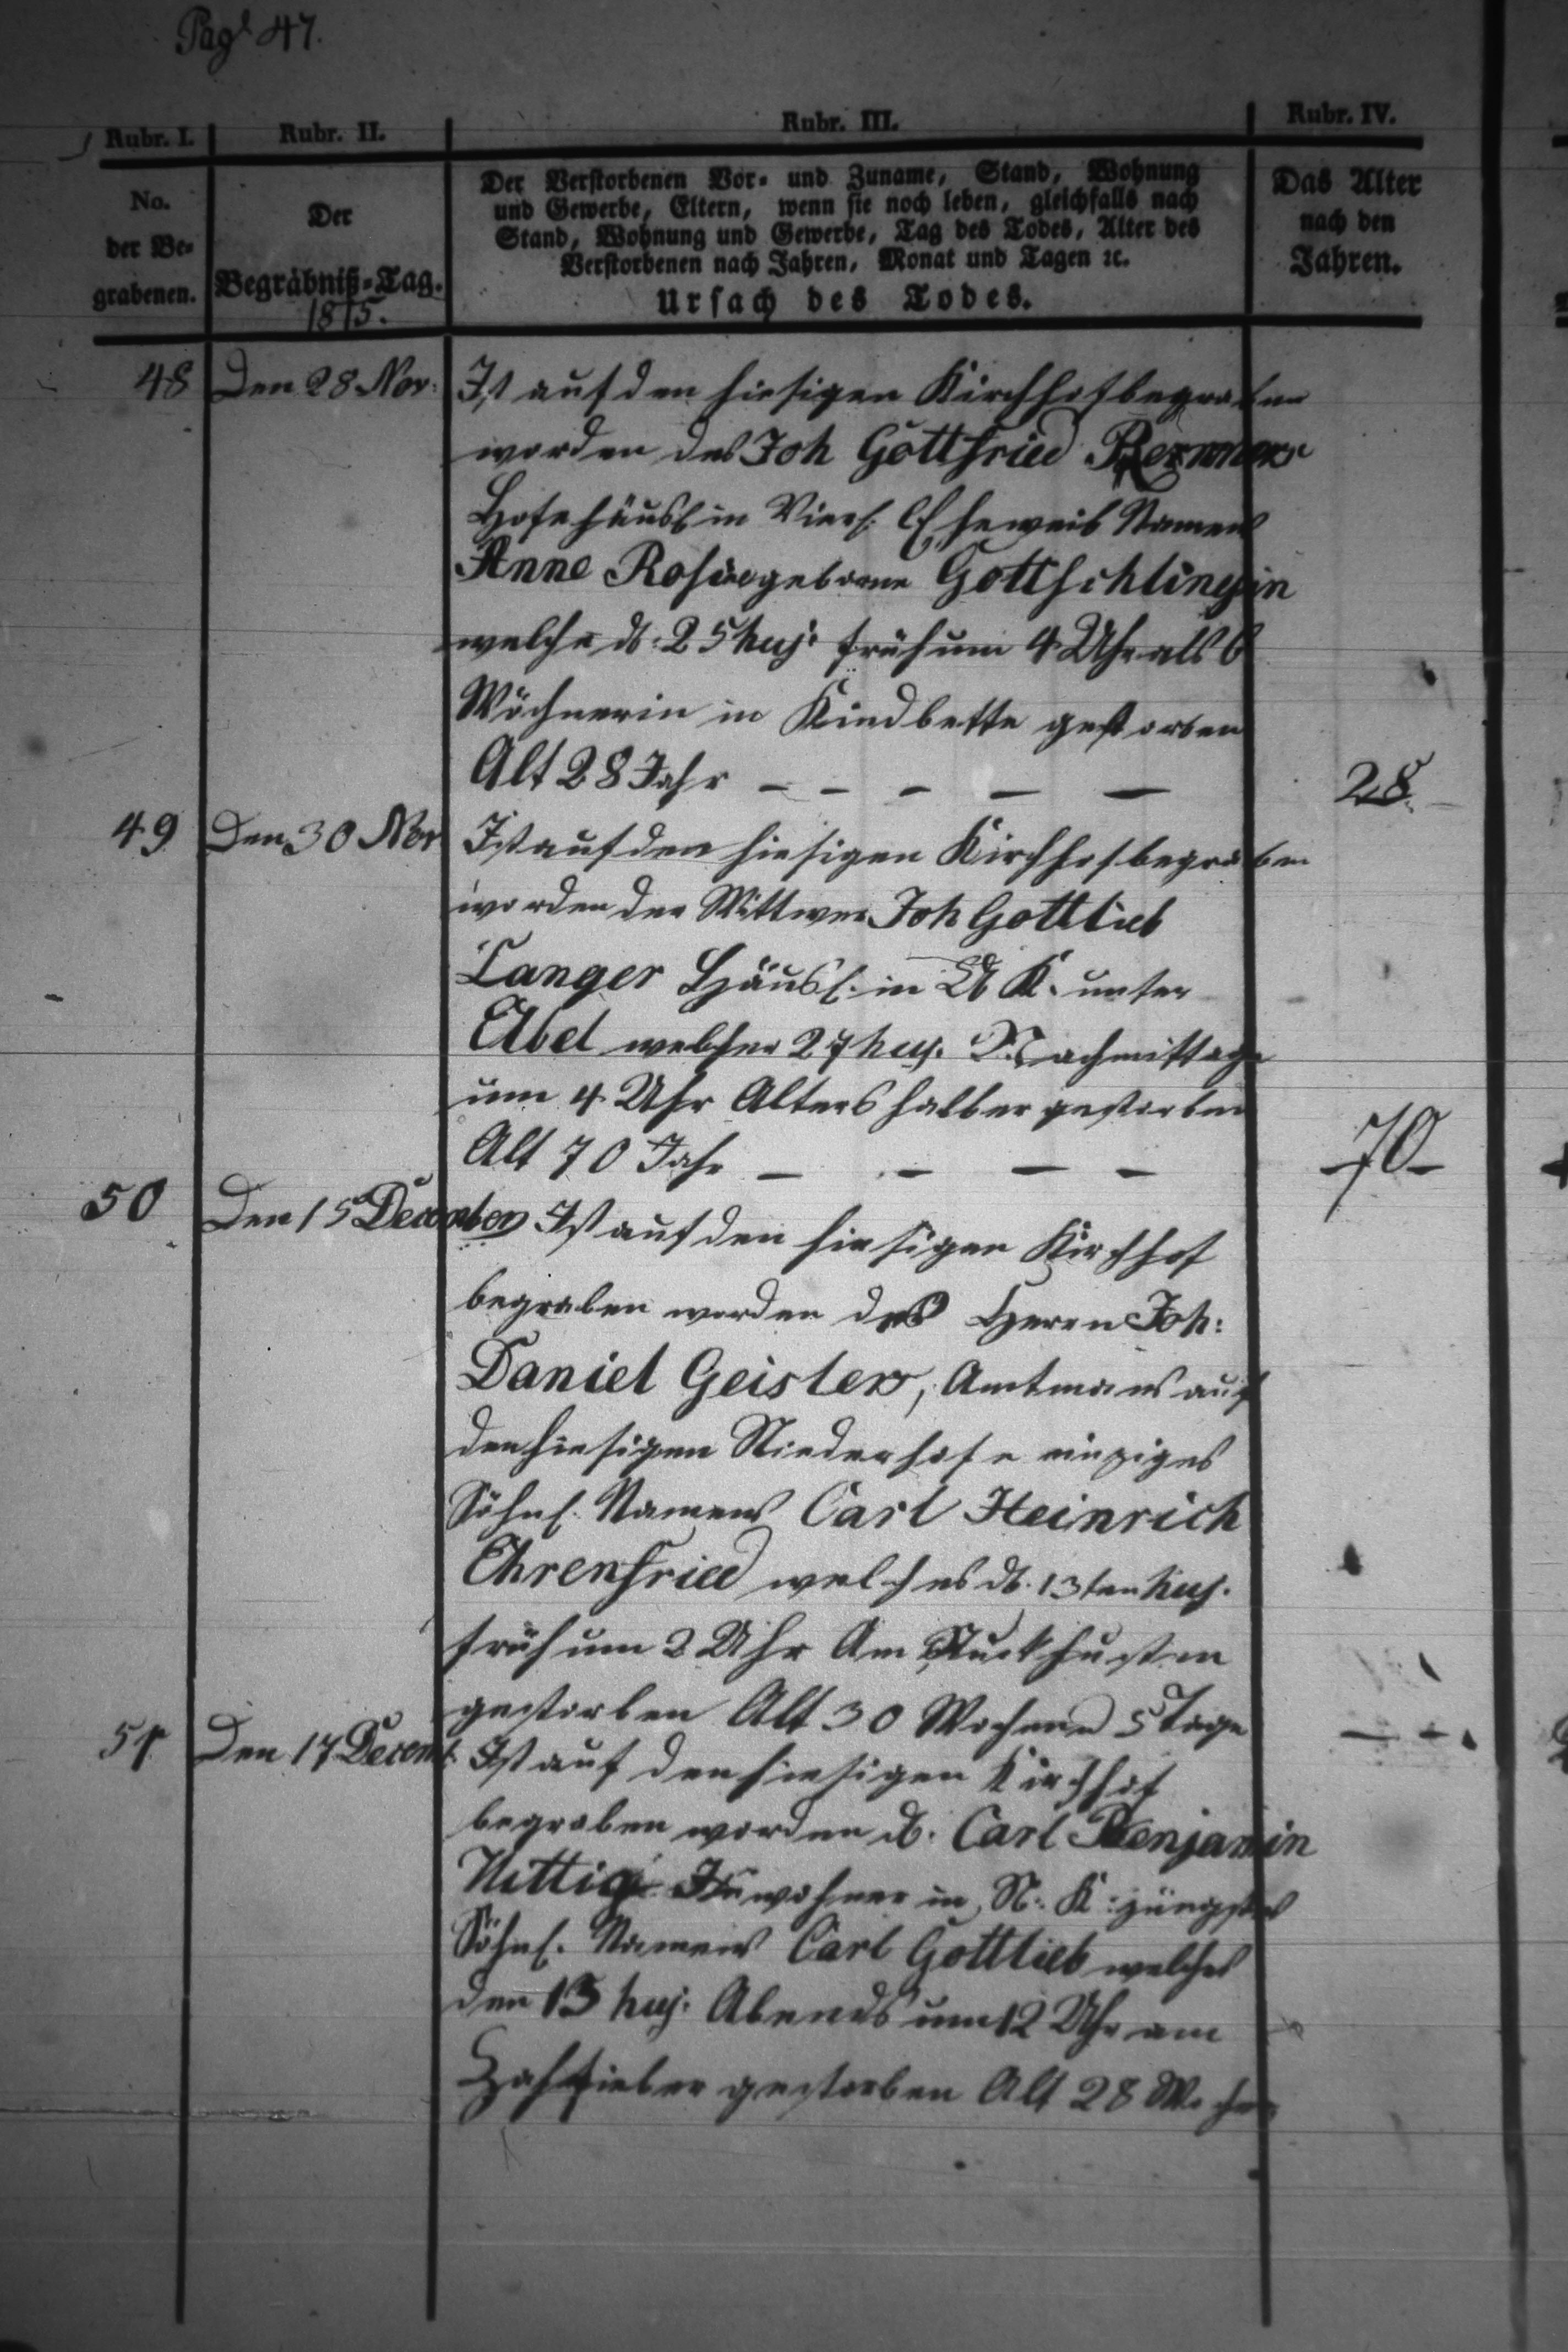 Pag. 47.
Rubr. I. Rubr. II. Rubr. III. Rubr. IV.
No. der Be- grabenen.
Der Begräbniß-Tag. 1815.
Der Verstorbenen Vor- und Zuname, Stand, Wohnung
und Gewerbe, Eltern, wenn sie noch leben, gleichfalls nach
Stand, Wohnung und Gewerbe, Tag des Todes, Alter des
Verstorbenen nach Jahren, Monat und Tagen ꝛc.
Ursach des Todes.
Das Alter nach den Jahren.
48 Den 28 Nov: Ist auf den hiesigen Kirchhof begraben
worden des Joh Gottfried
Hofehäusl. in Eheweib Namens
Anne Rosine geborne Gottschlingin
welche d. 25 huj: früh um 4 Uhr als 6
Wöchnerin in Kindbette gestorben
Alt 28 Jahr — — — — — 28.
49 Den 30 Nov Ist auf den hiesigen Kirchhof begraben
worden der Wittwer Joh Gottlieb
Langer Häusl: in K. unter
Abel welcher 27 huj. Nachmittage
um 4 Uhr Alters halber gestorben
Alt 70 Jahr — — — — 70
50 Den 15 December Ist auf den hiesigen Kirchhof
begraben worden des Herrn Joh:
Daniel Geisler, Amtmans auf
den hiesigen Niederhofe einziges
Söhnl. Namens Carl Heinrich
Ehrenfried welches d. 13ten huj.
früh um 2 Uhr Am Stuckhusten
gestorben Alt 30 Wochen 5 Tage — — .
51 Den 17 Decemb: Ist auf den hiesigen Kirchhof
begraben worden d. Carl Benjamin
Inwohner in N: K: jüngstes
Söhnl. Namens Carl Gottlieb welches
den 13 huj: Abends um 12 Uhr am
Zahnfieber gestorben Alt 28 Wochen